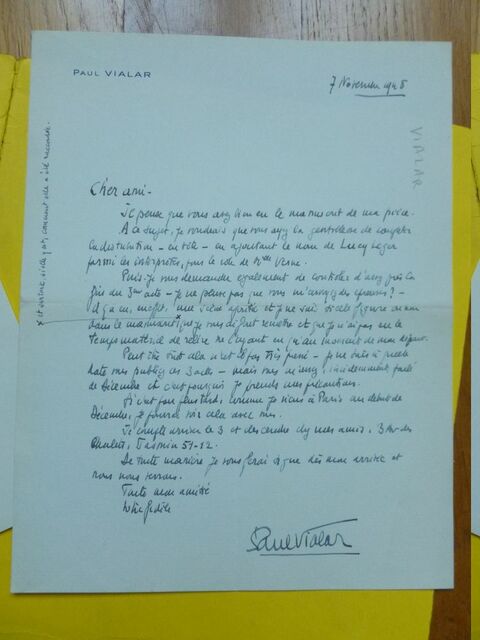 PAUL VIALAR
7 Novembre 1948
VIALAR
Cher ami -
Je pense que vous avez bien eu le manuscrit de ma pièce.
A ce sujet, je voudrais que vous ayez la gentillesse de compléter
la distribution - en tête - en ajoutant le nom de Lucy Léger
parmi les interprètes, pour le rôle de Mlle Verne.
Puis-je vous demander également de contrôler d'assez près la
fin du 3ème acte - je ne pense pas que vous m'envoyiez des épreuves ? -
Il y a eu, en effet, une scène ajoutée et je ne sais si elle figure ou non
dans le manuscrit que je vous ai fait remettre et que je n'ai pas eu le
temps matériel de relire ne l'ayant eu qu'au moment de mon départ.
Peut être tout cela n'est-il pas très pressé - je ne sais à quelle
date vous publiez ces 3 actes - mais vous m'avez, incidemment, parlé
de Décembre et c'est pourquoi je prends mes précautions.
Si c'est pour plus tard, comme je viens à Paris au début de
Décembre, je pourrai voir cela avec vous.
Je compte arriver le 3 et descendre chez mes amis, 3 Av. des
Chalets, Jasmin 51-12.
De toute manière je vous ferai signe dès mon arrivée et
nous nous verrons.
Toute mon amitié
votre fidèle
Paul Vialar
x et surtout si elle y est, comment elle a été raccordée.